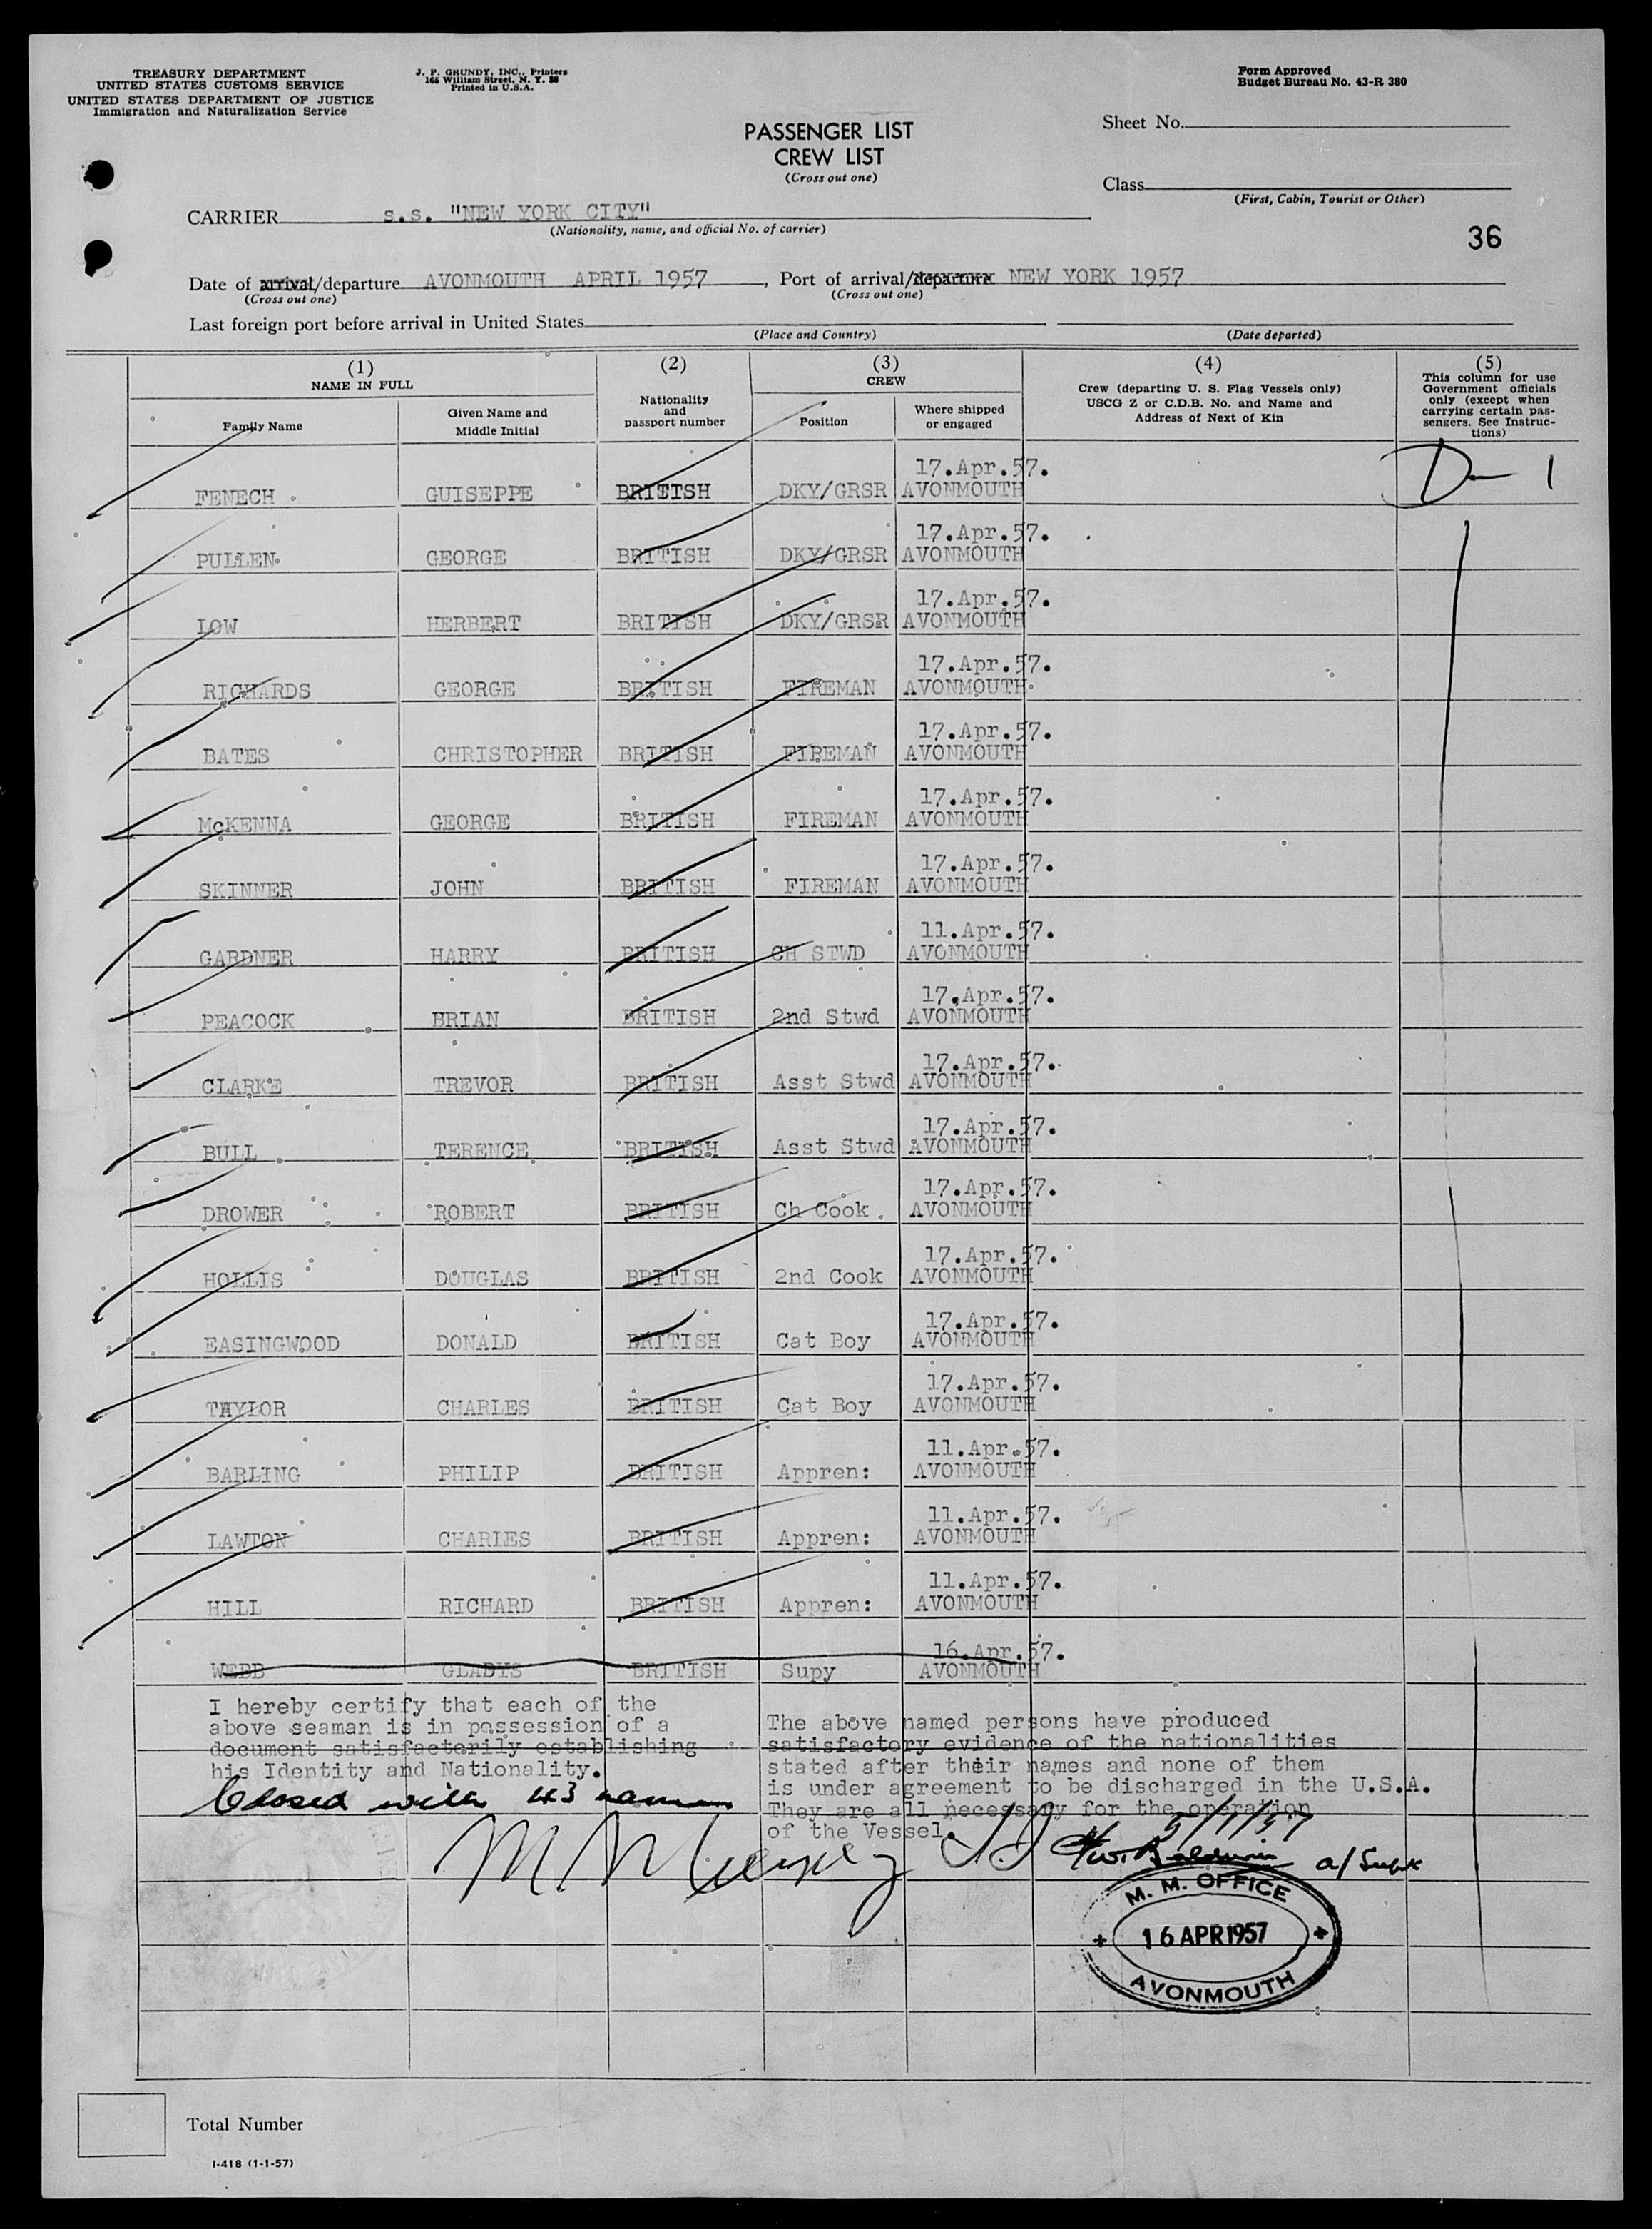 TREASURY DEPARTMENT
UNITED STATES CUSTOMS SERVICE
UNITED STATES DEPARTMENT OF JUSTICE
Immigration and Naturalization Service
J. P. GRUNDY, INC., Printers
165 William Street, N. Y. 38
Printed in U.S.A.
Form Approved
Budget Bureau No. 43-R 380
PASSENGER LIST
CREW LIST
(Cross out one)
Sheet No.
Class
(First, Cabin, Tourist or Other)
CARRIER s.s. "NEW YORK CITY"
(Nationality, name, and official No. of carrier)
36
Date of arrival/departure AVONMOUTH APRIL 1957, Port of arrival/departure NEW YORK 1957
(Cross out one) (Cross out one)
Last foreign port before arrival in United States
(Place and Country) (Date departed)
(1) NAME IN FULL
Family Name
Given Name and Middle Initial
(2) Nationality and passport number
(3) CREW
Position
Where shipped or engaged
(4)
Crew (departing U. S. Flag Vessels only)
USCG Z or C.D.B. No. and Name and
Address of Next of Kin
(5)
This column for use
Government officials
only (except when
carrying certain pas-
sengers. See Instruc-
tions)
17.Apr.57.
FENECH GUISEPPE BRITISH DKY/GRSR AVONMOUTH
D 1
17.Apr.57.
PULLEN GEORGE BRITISH DKY/GRSR AVONMOUTH
17.Apr.57.
LOW HERBERT BRITISH DKY/GRSR AVONMOUTH
17.Apr.57.
RICHARDS GEORGE BRITISH FIREMAN AVONMOUTH
17.Apr.57.
BATES CHRISTOPHER BRITISH FIREMAN AVONMOUTH
17.Apr.57.
McKENNA GEORGE BRITISH FIREMAN AVONMOUTH
17.Apr.57.
SKINNER JOHN BRITISH FIREMAN AVONMOUTH
11.Apr.57.
GARDNER HARRY BRITISH CH STWD AVONMOUTH
17.Apr.57.
PEACOCK BRIAN BRITISH 2nd Stwd AVONMOUTH
17.Apr.57.
CLARKE TREVOR BRITISH Asst Stwd AVONMOUTH
17.Apr.57.
BULL TERENCE BRITISH Asst Stwd AVONMOUTH
17.Apr.57.
DROWER ROBERT BRITISH Ch Cook. AVONMOUTH
17.Apr.57.
HOLLIS DOUGLAS BRITISH 2nd Cook AVONMOUTH
17.Apr.57.
EASINGWOOD DONALD BRITISH Cat Boy AVONMOUTH
17.Apr.57.
TAYLOR CHARLES BRITISH Cat Boy AVONMOUTH
11.Apr.57.
BARLING PHILIP BRITISH Appren: AVONMOUTH
11.Apr.57.
LAWTON CHARLES BRITISH Appren: AVONMOUTH
11.Apr.57.
HILL RICHARD BRITISH Appren: AVONMOUTH
16.Apr.57.
WEBB GLADYS BRITISH Supy AVONMOUTH
I hereby certify that each of the
above seaman is in possession of a
document satisfactorily establishing
his Identity and Nationality.
Closed with 43 names
The above named persons have produced
satisfactory evidence of the nationalities
stated after their names and none of them
is under agreement to be discharged in the U.S.A.
They are all necessary for the operation
of the Vessel.
W. Baldwin a/Supt
M. M. OFFICE
16 APR 1957
AVONMOUTH
Total Number
I-418 (1-1-57)